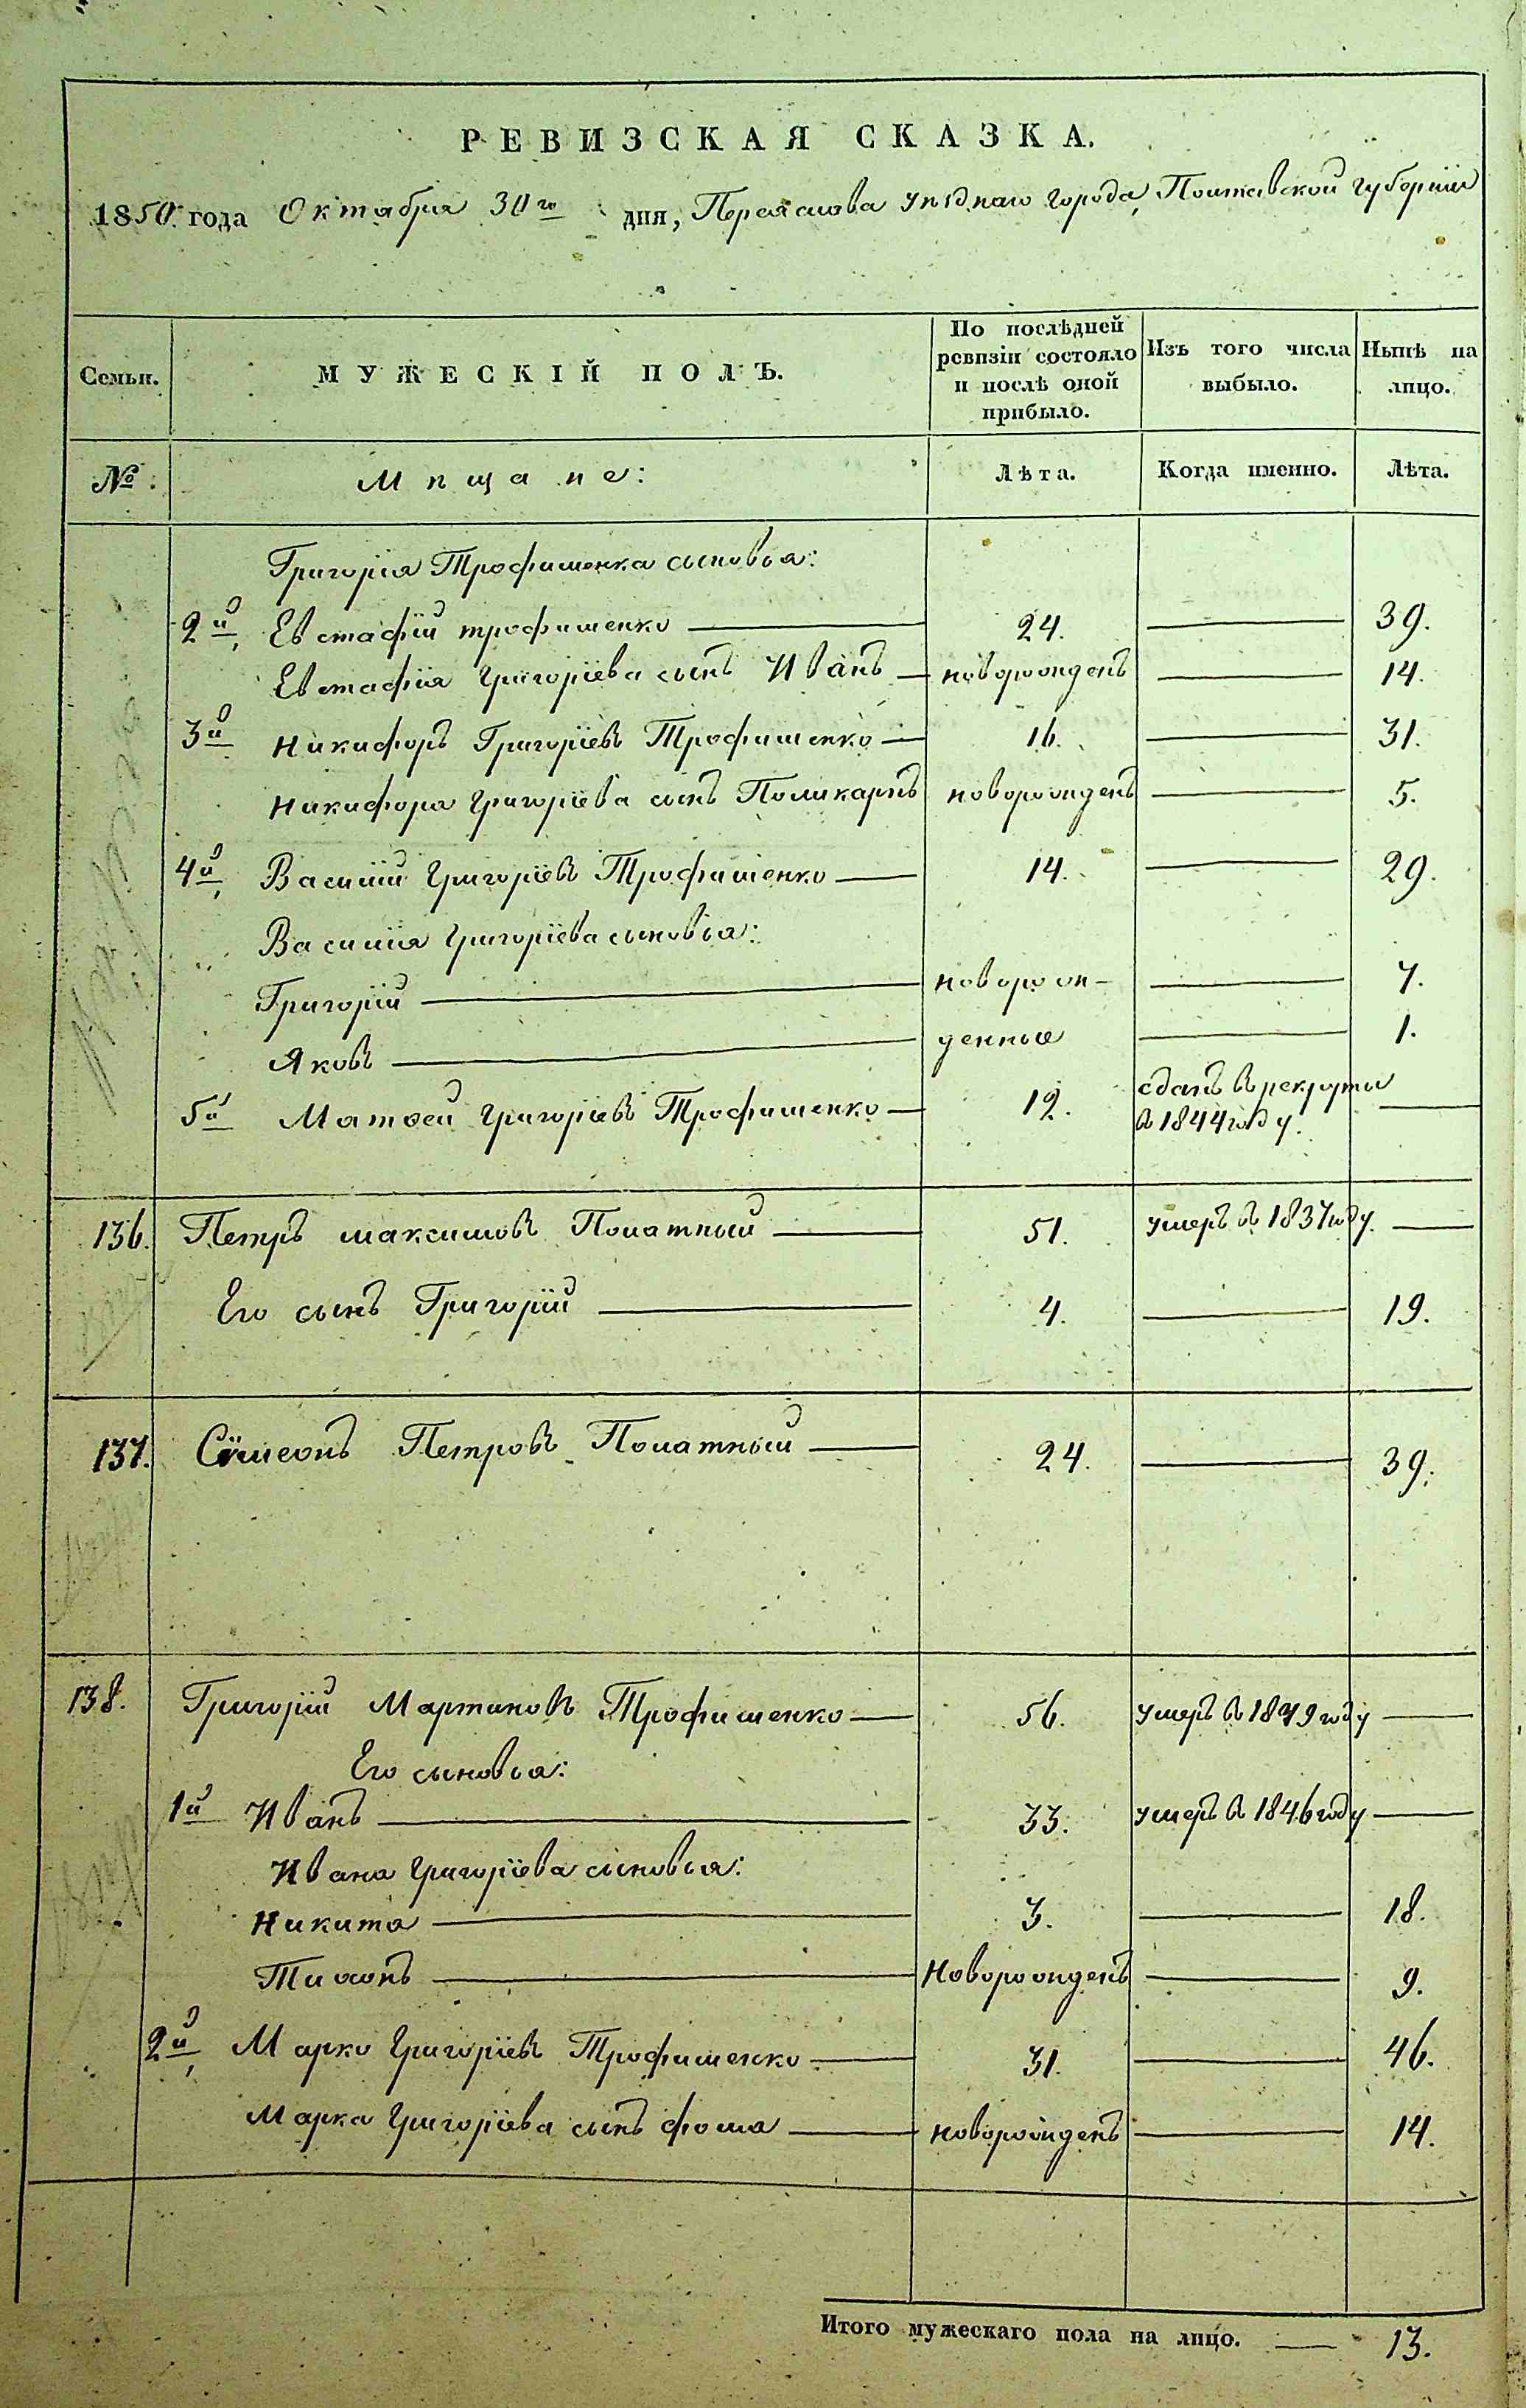 РЕВИЗСКАЯ СКАЗКА.
1850 года Октября 30го дня, Переяслова уѣзднаго города, Полтавской губерніи
Семьи. МУЖЕСКІЙ ПОЛЪ. По послѣдней ревизіи состояло и послѣ оной прибыло. Изъ того числа выбыло. Нынѣ на лицо.
№ Мѣщане: Лѣта. Когда именно. Лѣта.
Григорія Трофименка сыновья:
2й, Евстафій трофименко 24. 39.
Евстафія Григоріева сынъ Иванъ новорожденъ 14.
3й Никифоръ Григоріевъ Трофименко 16. 31.
Никифора Григоріева сынъ Поликарпъ новорожденъ 5.
4й, Василій Григоріевъ Трофименко 14. 29.
Василія Григоріева сыновья:
Григорій новорож- 7.
Яковъ денные 1.
5й Матѳей Григоріевъ Трофименко 12. сданъ в рекруты в 1844 году.
136. Петръ максимовъ Полатный 51. умеръ в 1837 году.
Его сынъ Григорій 4. 19.
137. Сѵмеонъ Петровъ Полатный 24. 39.
138. Григорій Мартиновъ Трофименко 56. умеръ в 1849 году
Его сыновья:
1й Иванъ 33. умеръ в 1846 году
Ивана Григоріева сыновья:
Никита 3. 18.
Тихонъ Новорожденъ 9.
2й, Марко Григоріевъ Трофименко 31. 46.
Марка Григоріева сынъ фома новорожденъ 14.
Итого мужескаго пола на лицо. 13.